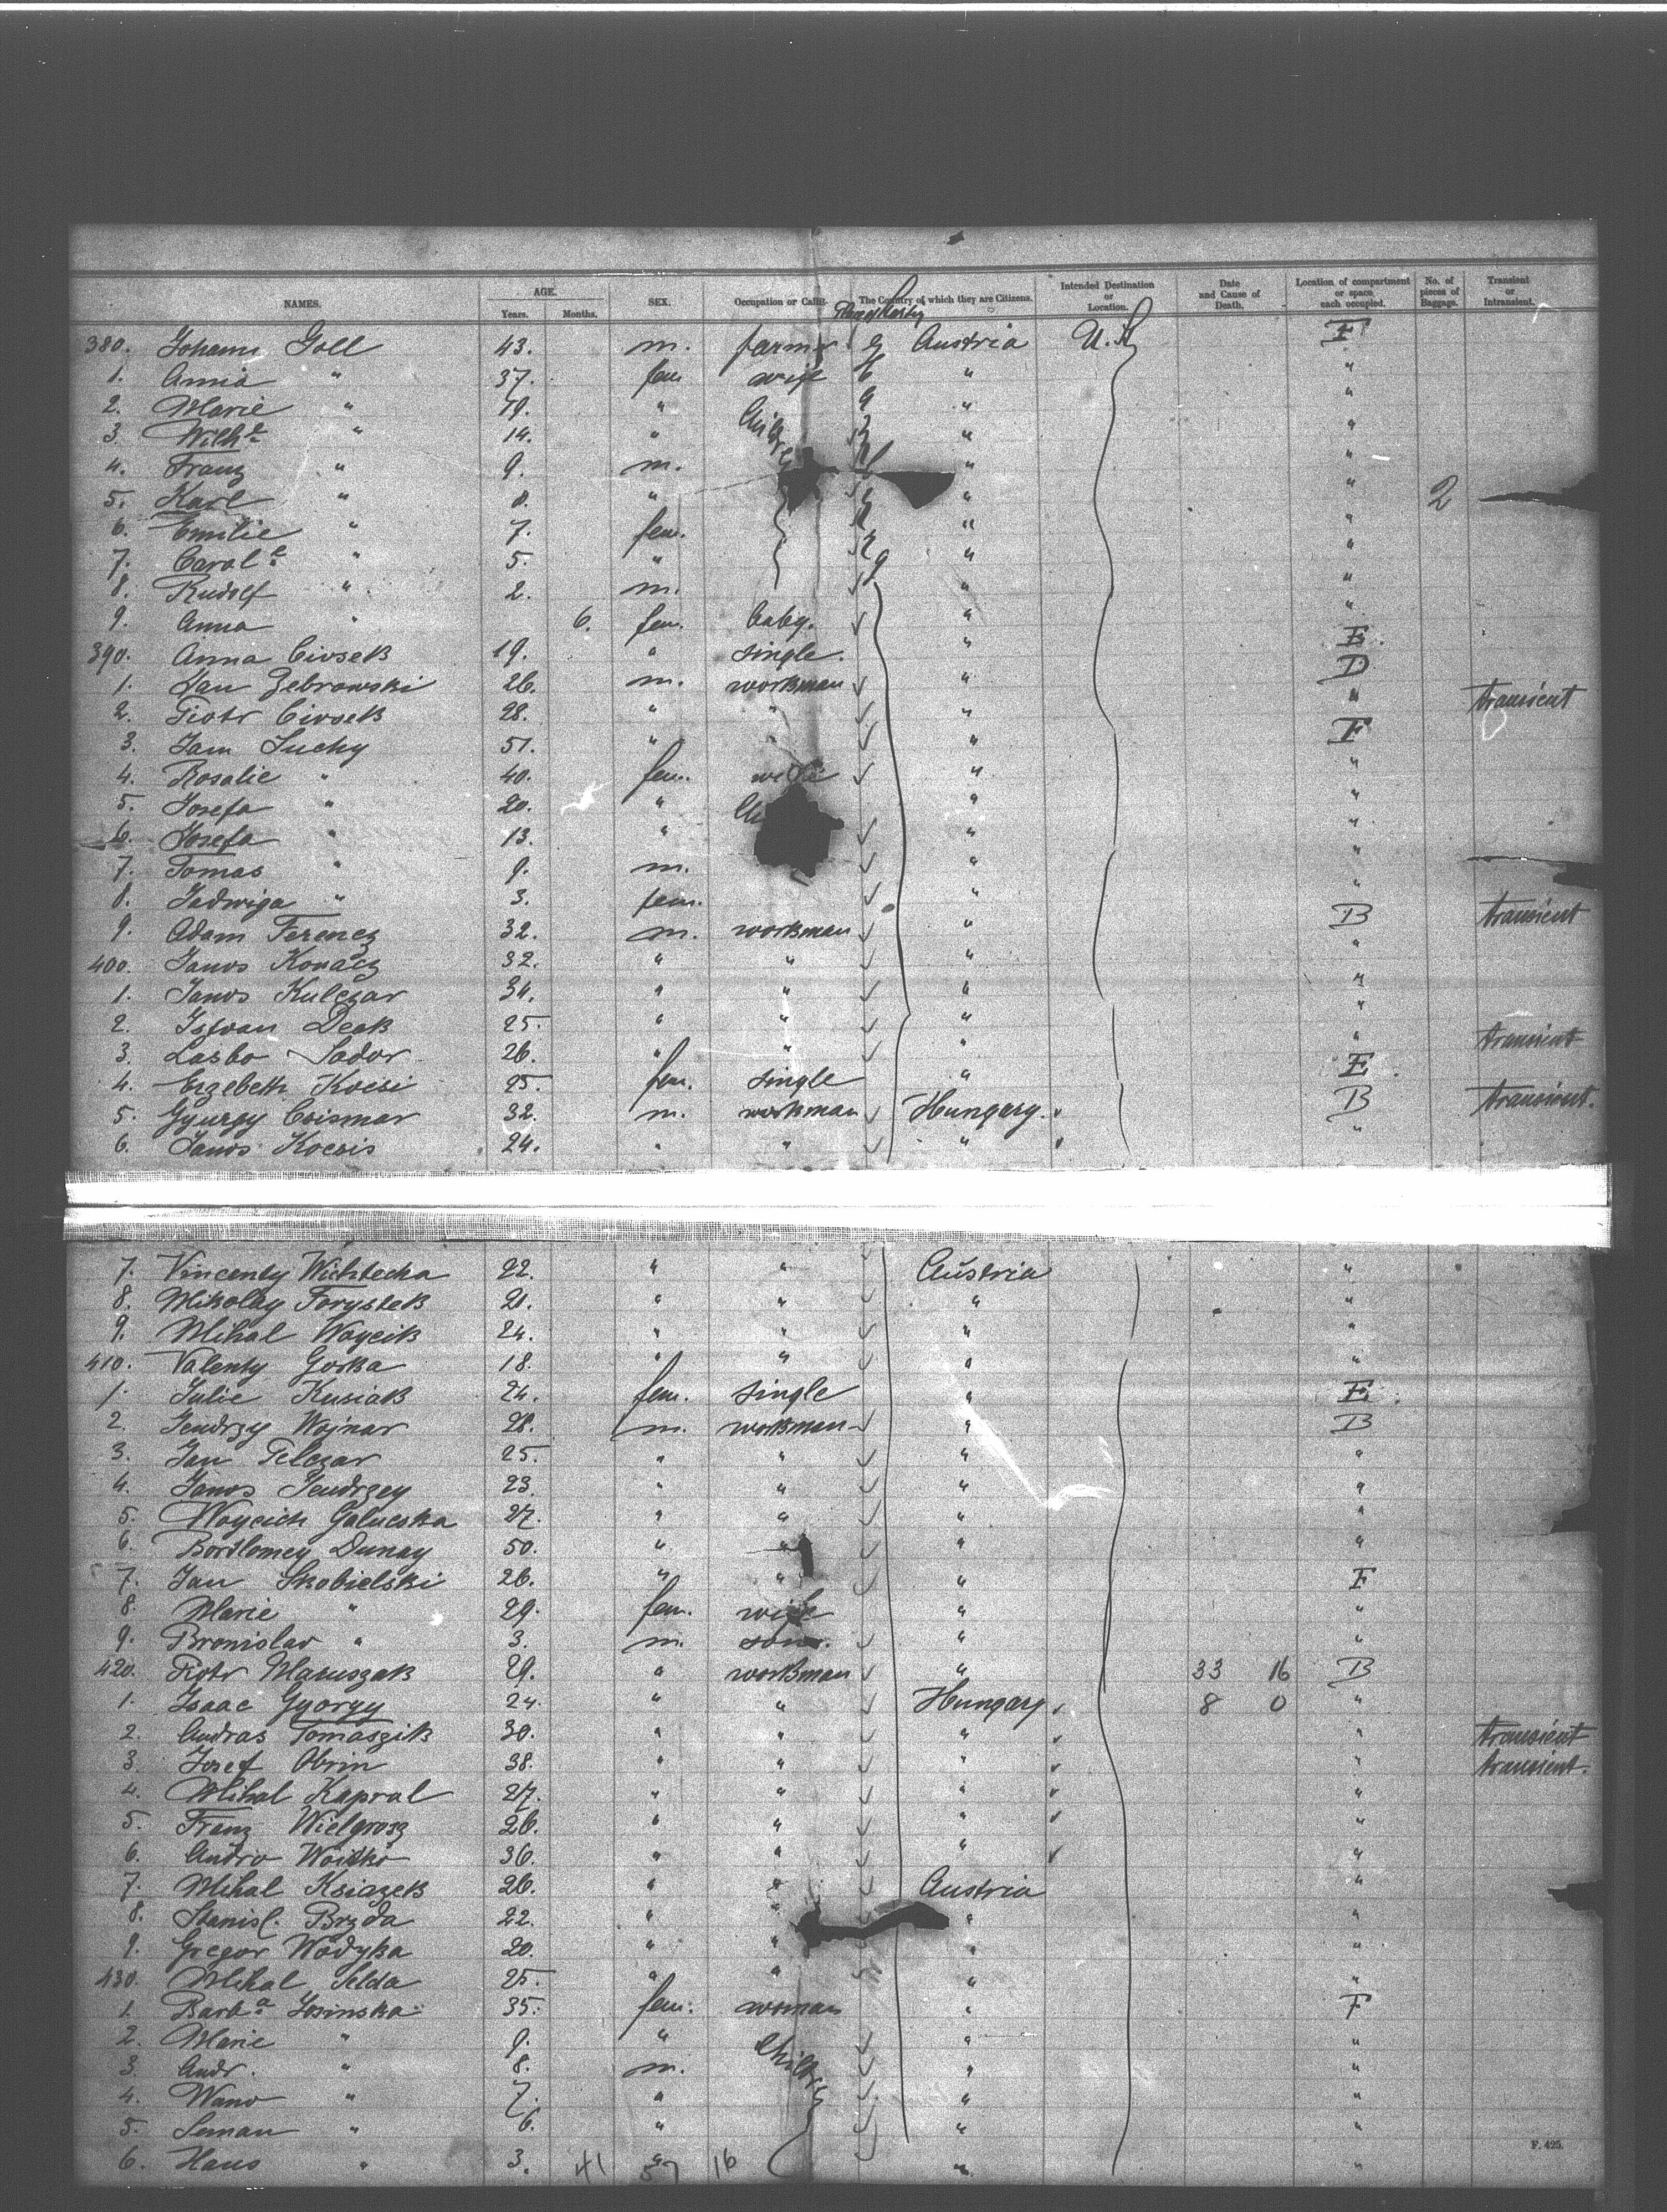 NAMES. AGE. Years. Months. SEX. Occupation or Callg. The Country of which they are Citizens. Intended Destination or Location. Date and Cause of Death. Location of compartment or space each occupied. No. of pieces of Baggage. Transient or Intransient.
380. Johann Goll 43. m. farmer Austria U.S. F
1. Anna " 37. fem. wife " "
2. Marie " 19. " " "
3. Wilh.e " 14. " " "
4. Franz " 9. m. " "
5. Karl " 8. " " " 2
6. Emilie " 7. fem. " "
7. Carol.e " 5. " " "
8. Rudolf " 2. m. " "
9. Anna " 6. fem. baby. " "
390. Anna Civsek 19. " single. " E.
1. Jan Zebrowski 26. m. workman " D
2. Piotr Civsek 28. " " " " transient
3. Jam Suchy 51. " " " F
4. Rosalie " 40. fem. wife " "
5. Josefa " 20. " " "
6. Josefa " 13. " " "
7. Tomas " 9. m. " "
8. Jadwiga " 3. fem. " "
9. Adam Ferencz 32. m. workman " B transient
400. Janos Kovacz 32. " " " "
1. Janos Kulczar 34. " " " "
2. Istvan Deak 25. " " " "
3. Lasbo Sador 26. " " " " transient
4. Erzebeth Kocsi 25. fem. single " E.
5. Gyurgy Csismar 32. m. workman Hungary. B transient.
6. Janos Kocsis 24. " " " "
7. Vincenty Wichtecha 22. " " Austria "
8. Mikolay Forystek 21. " " " "
9. Mihal Woycik 24. " " " "
410. Valenty Gorka 18. " " " "
1. Julie Kusiak 24. fem. single " E.
2. Jendrzy Wojnar 28. m. workman " B
3. Jan Pelczar 25. " " " "
4. Janos Jendrzey 23. " " " "
5. Woycich Galucska 27. " " " "
6. Bortlomey Dunay 50. " " " "
7. Jan Skobielski 26. " " " F
8. Marie " 29. fem. wife " "
9. Bronislav " 3. m. son. " "
420. Piotr Maruszak 29. " workman " 33 16 B
1. Isaac Gyorgy 24. " " Hungary 8 0 "
2. Andras Tomaszik 30. " " " " transient
3. Josef Obrin 38. " " " " transient.
4. Mihal Kapral 27. " " " "
5. Franz Wielgrosz 26. " " " "
6. Andro 36. " " " "
7. Mihal Ksiazek 26. " " Austria "
8. Stanisl. Brzda 22. " " " "
9. Gregor Wodyka 20. " " " "
430. Mihal Selda 25. " " " "
1. Barb.a Josinska 35. fem. woman " F
2. Marie " 9. " Children " "
3. Andr. " 8. m. " "
4. Wano " 7. " " "
5. Seman " 6. " " "
F. 425.
6. Hans " 3. " " "
41 57 16